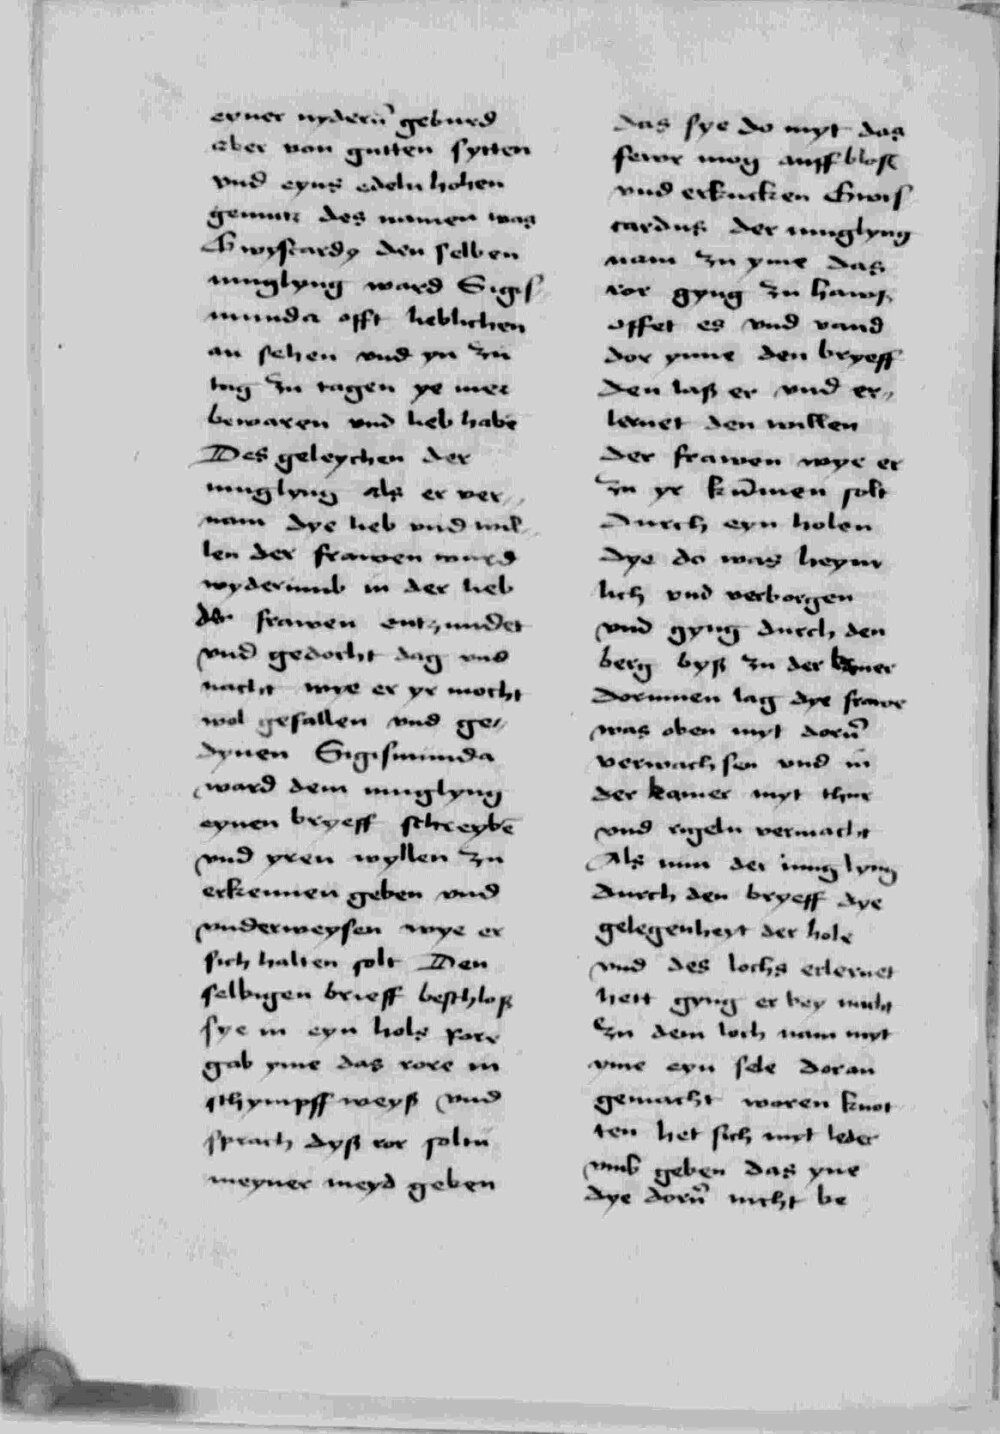 eyner nyderñ geburd
aber von gutten sytten
vnd eyns edeln hohen
gemutz des namen was
Gwyscardy den selben
iunglyng ward Sigis
munda offt lieblichen
an sehen vnd yn zu
tag zu tagen ye mer
bewaren vnd lieb habē
Des geleychen der
iunglyng als er ver,,
nam dye lieb vnd wil,,
len der frawen ward
wyderumb in der lieb
der frawen entzundet
vnd gedocht dag vnd
nacht wye er yr mocht
wol gefallen vnd ge,,
dynen Sigismunda
ward dem iunglyng
eynen bryeff schreybē
vnd yren wyllen zu
erkennen geben vnd
vnderweysen wye er
sich halten solt Den
selbigen brieff beschloß
sye in eyn hols rore
gab yme das rore in
schympff weyß vnd
sprach dyß ror soltu
meyner meyd geben
das sye do myt das
fewr mog auff bloße
vnd erkucken Gwis
cardus der iunglyng
nam zu yme das
ror gyng zu hawß
offet es vnd vand
dor ynne den bryeff
den laß er vnd er,,
lernet den willen
der frawen wye er
zu yr kūmen solt
durch eyn holen
dye do was heym
lich vnd verborgen
vnd gyng durch den
berg byß zu der kamer
dorinnen lag dye frawe
was oben myt dorñ
verwachsen vnd in
der kamer myt thur
vnd rigeln vermacht
Als nun der iunglyng
durch den bryeff dye
gelegenheyt der hole
vnd des lochs erlernet
hett gyng er bey nacht
zu dem loch nam myt
yme eyn sele doran
gemacht woren knot
ten het sich myt leder
vmb geben das yne
dye dorñ nicht be